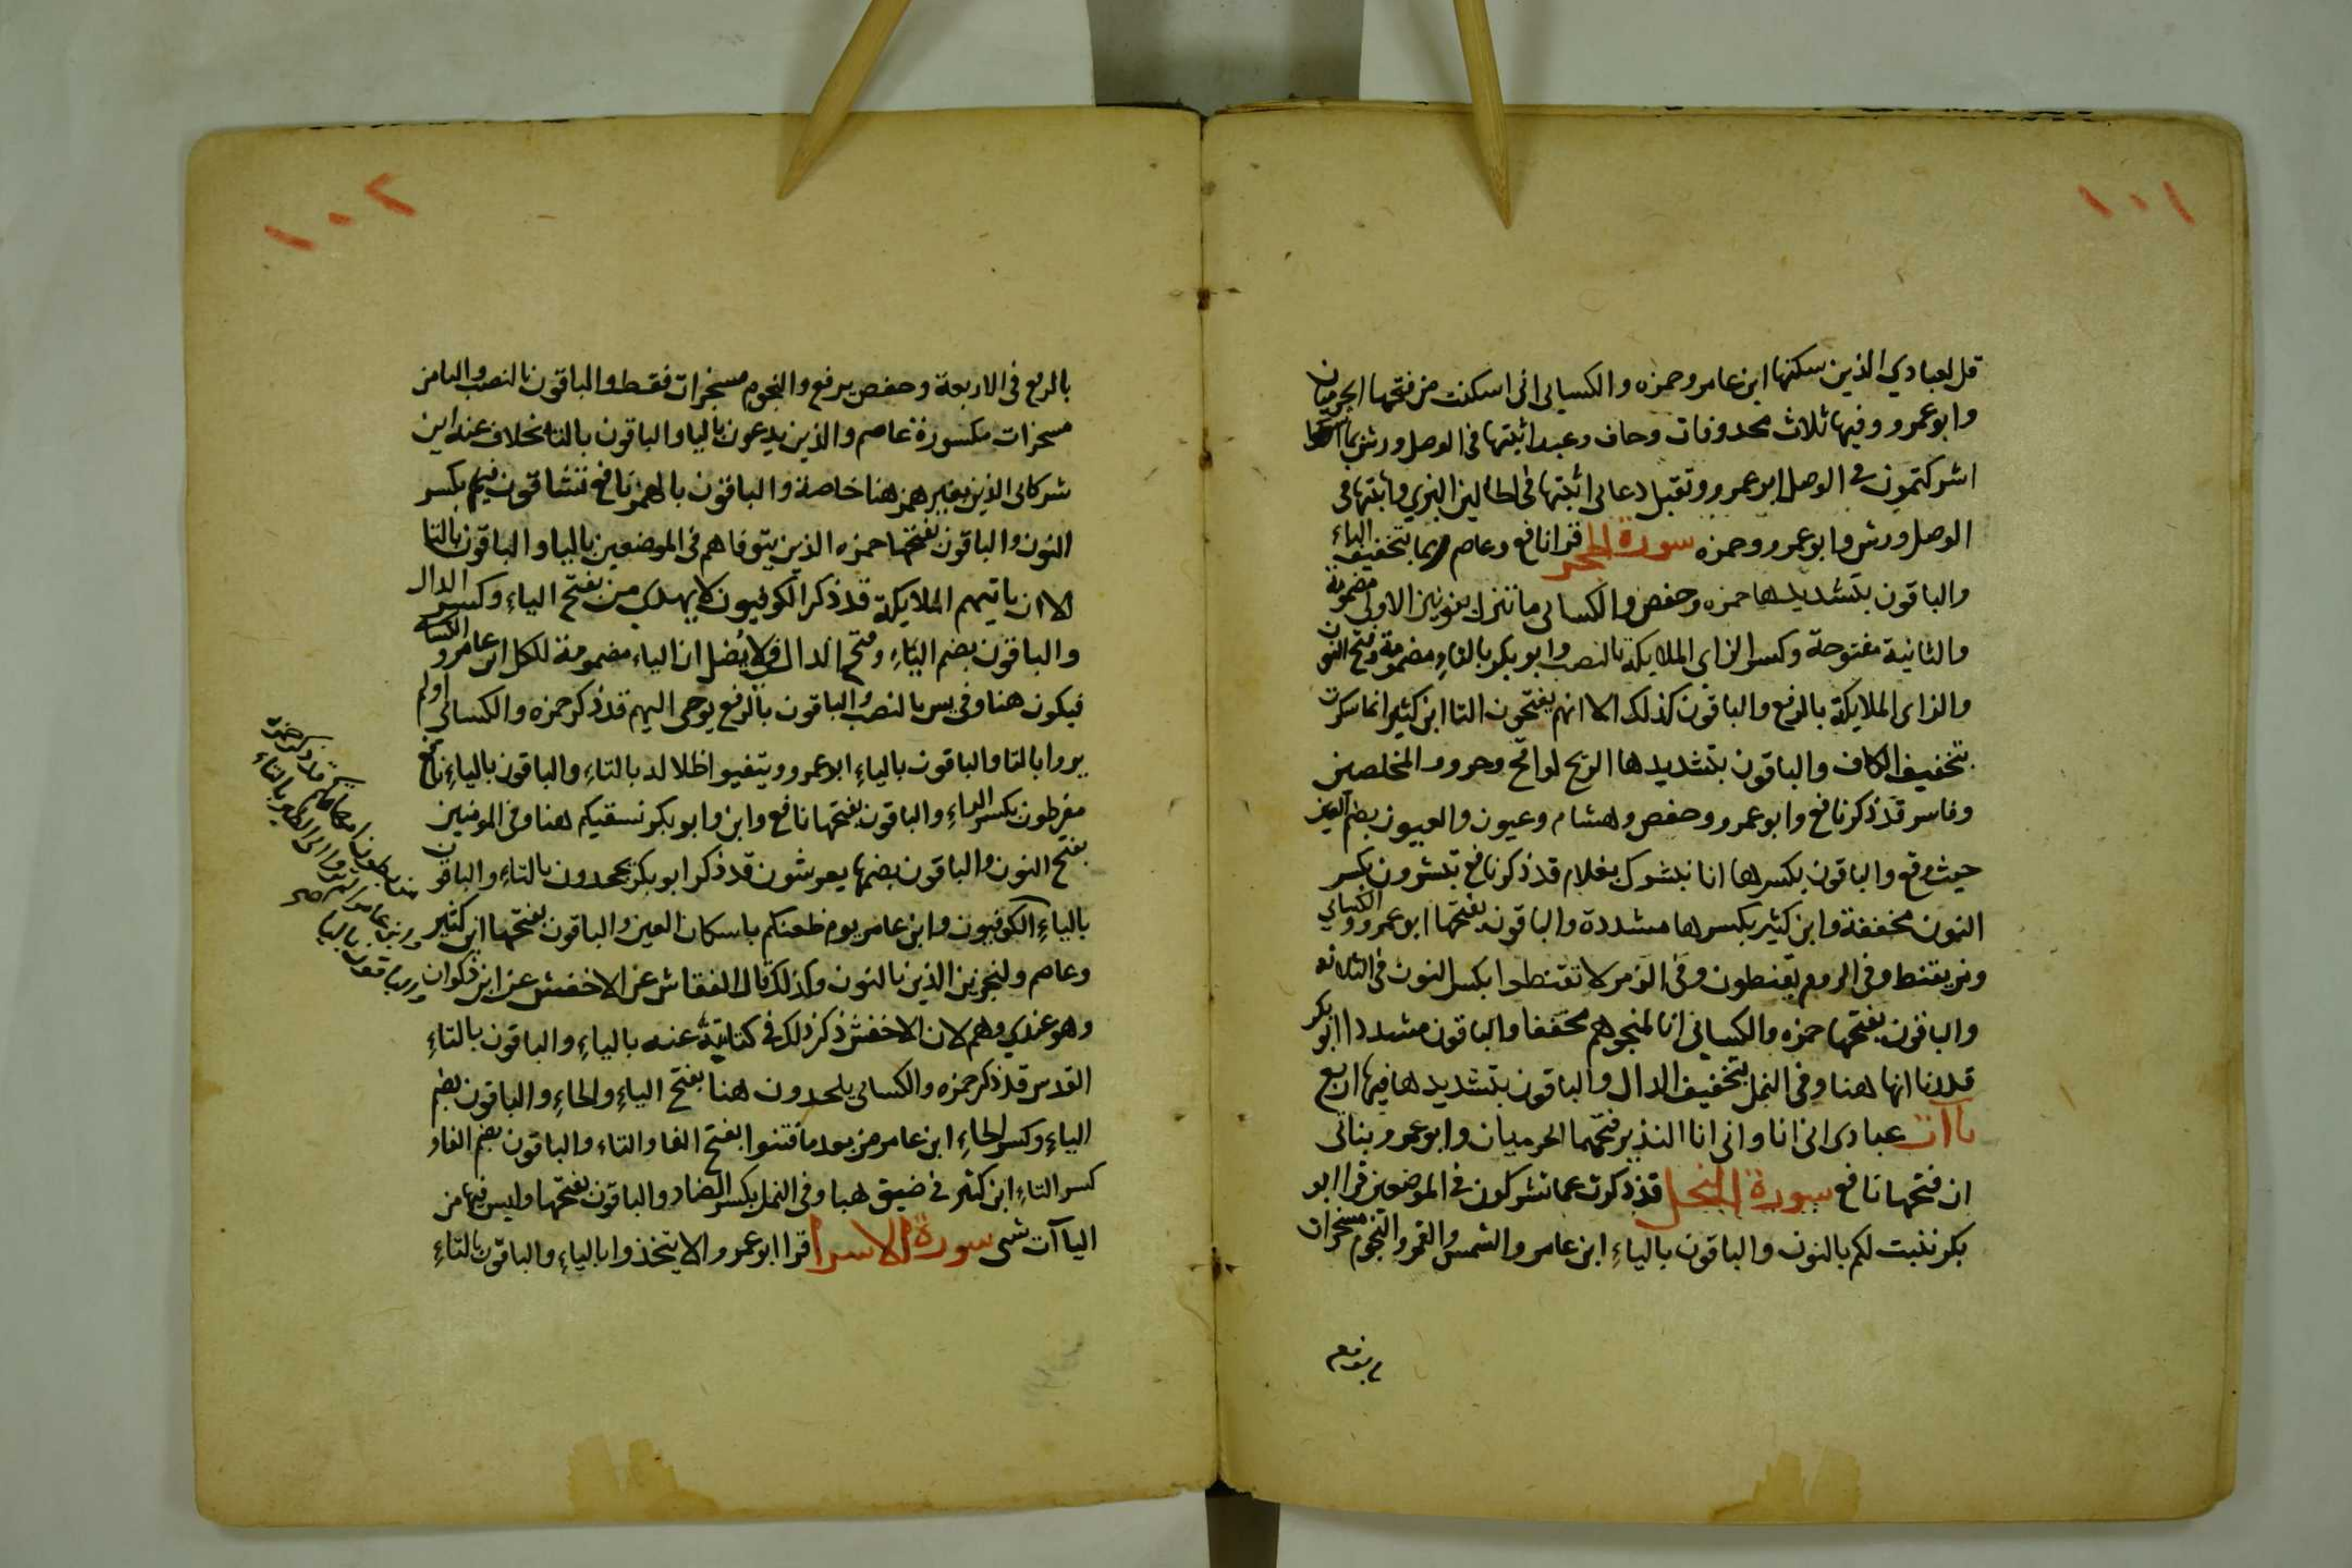 ١٠١
قل لعبادي الذين سكنها ابن عامر وحمزه والكسايى انى اسكنت من فتحها الحرميان
وابو عمرو وفيها ثلاث محذوفات وخاف وعيد اثبتها فى الوصل ورش بما
اشركتمون فى الوصل ابو عمرو وتقبل دعاى اثبتها فى الحالين البزي واثبتها فى
الوصل ورش وابو عمرو وحمزه سورة الحجر قرا نافع وعاصم ربما بتخفيف الباء
والباقون بتشديدها حمزه وحفص والكسائى ما ننزل بنونين الاولى مضمومة
والثانية مفتوحة وكسر الزاى الملايكة بالنصب وابو بكر بالتاءِ مضمومة وفتح النون
والزاى الملايكة بالرفع والباقون كذلك الا انهم يفتحون التا ابن كثير انما سكرت
بتخفيف الكاف والباقون بتشديدها الريح لواقح وجزوو المخلصين
وفاسر قد ذكر نافع وابو عمرو وحفص وهشام وعيون والعيون بضم العين
حيث وقع والباقون بكسرها انا نبشرك بغلام قد ذكر نافع تبشرون بكسر
النون مخففة وابن كثير بكسرها مشددة والباقون بفتحها ابو عمرو والكسائي
ومن يقنط وفى الروم يقنطون وفى الزمر لا تقنطوا بكسر النون فى الثلاثه
والباقون بفتحها حمزه والكسائى انا لمنجوهم مخففا والباقون مشددا ابو بكر
قدرنا انها هنا وفى النمل بتخفيف الدال والباقون بتشديدها فيها اربع
ياآت عبادى انى انا وانى انا النذير فتحهما الحرميان وابو عمرو بناتى
ان فتحها نافع سورة النحل قد ذكرت عما تشركون فى الموضعين قرا ابو
بكر ننبت لكم بالنون والباقون بالياءِ ابن عامر والشمس والقمر والنجوم مسخرات
بالرفع
١٠٢
بالرفع فى الاربعة وحفص برفع والنجوم مسخرات فقط والباقون بالنصب والتا من
مسخرات مكسورة عاصم والذين يدعون باليا والباقون بالتا بخلاف عنه اين
شركائى الذين بغير همز هنا خاصة والباقون بالهمز نافع تشاقون فيهم بكسر
النون والباقون بفتحها حمزه الذين يتوفاهم فى الموضعين باليا والباقون بالتا
الا ان ياتيهم الملايكة قد ذكر الكوفيون لا يهدى من بفتح الياءِ وكسر الدال
والباقون بضم الياءِ وفتح الدال ولا يُضل ان الياء مضمومة للكل ابن عامر والكسائى
فيكون هنا وفى يس بالنصب والباقون بالرفع يوحى اليهم قد ذكر حمزه والكسائى اولم
يروا بالتا والباقون بالياءِ ابو عمرو ويتفيوا ظلاله بالتاءِ والباقون بالياءِ نافع
مفرطون بكسر الراءِ والباقون بفتحها نافع وابن وابو بكر نسقيكم هنا وفى المومنين
بفتح النون والباقون بضمها يعرشون قد ذكر ابو بكر يجحدون بالتاءِ والباقون
بالياءِ الكوفيون وابن عامر يوم ظعنكم باسكان العين والباقون بفتحها ابن كثير
وعاصم ولنجزين الذين بالنون وكذلك قال النقاش عن الاخفش عن ابن ذكوان
وهو عندي وهم لان الاخفش ذكر ذلك فى كتابيه عنه بالياءِ والباقون بالتاءِ
القدس قد ذكر حمزه والكسائى يلحدون هنا بفتح الياءِ والحاءِ والباقون بضم
الياءِ وكسر الحاءِ ابن عامر من بعد ما فتنوا بفتح الفا والتاء والباقون بضم الفاو
كسر التاءِ ابن كثير فى ضيق هنا وفى النمل بكسر الضاد والباقون بفتحها وليس فيها من
الياآت شى سورة الاسرا قرا ابو عمرو الا يتخذوا بالياءِ والباقون بالتاءِ